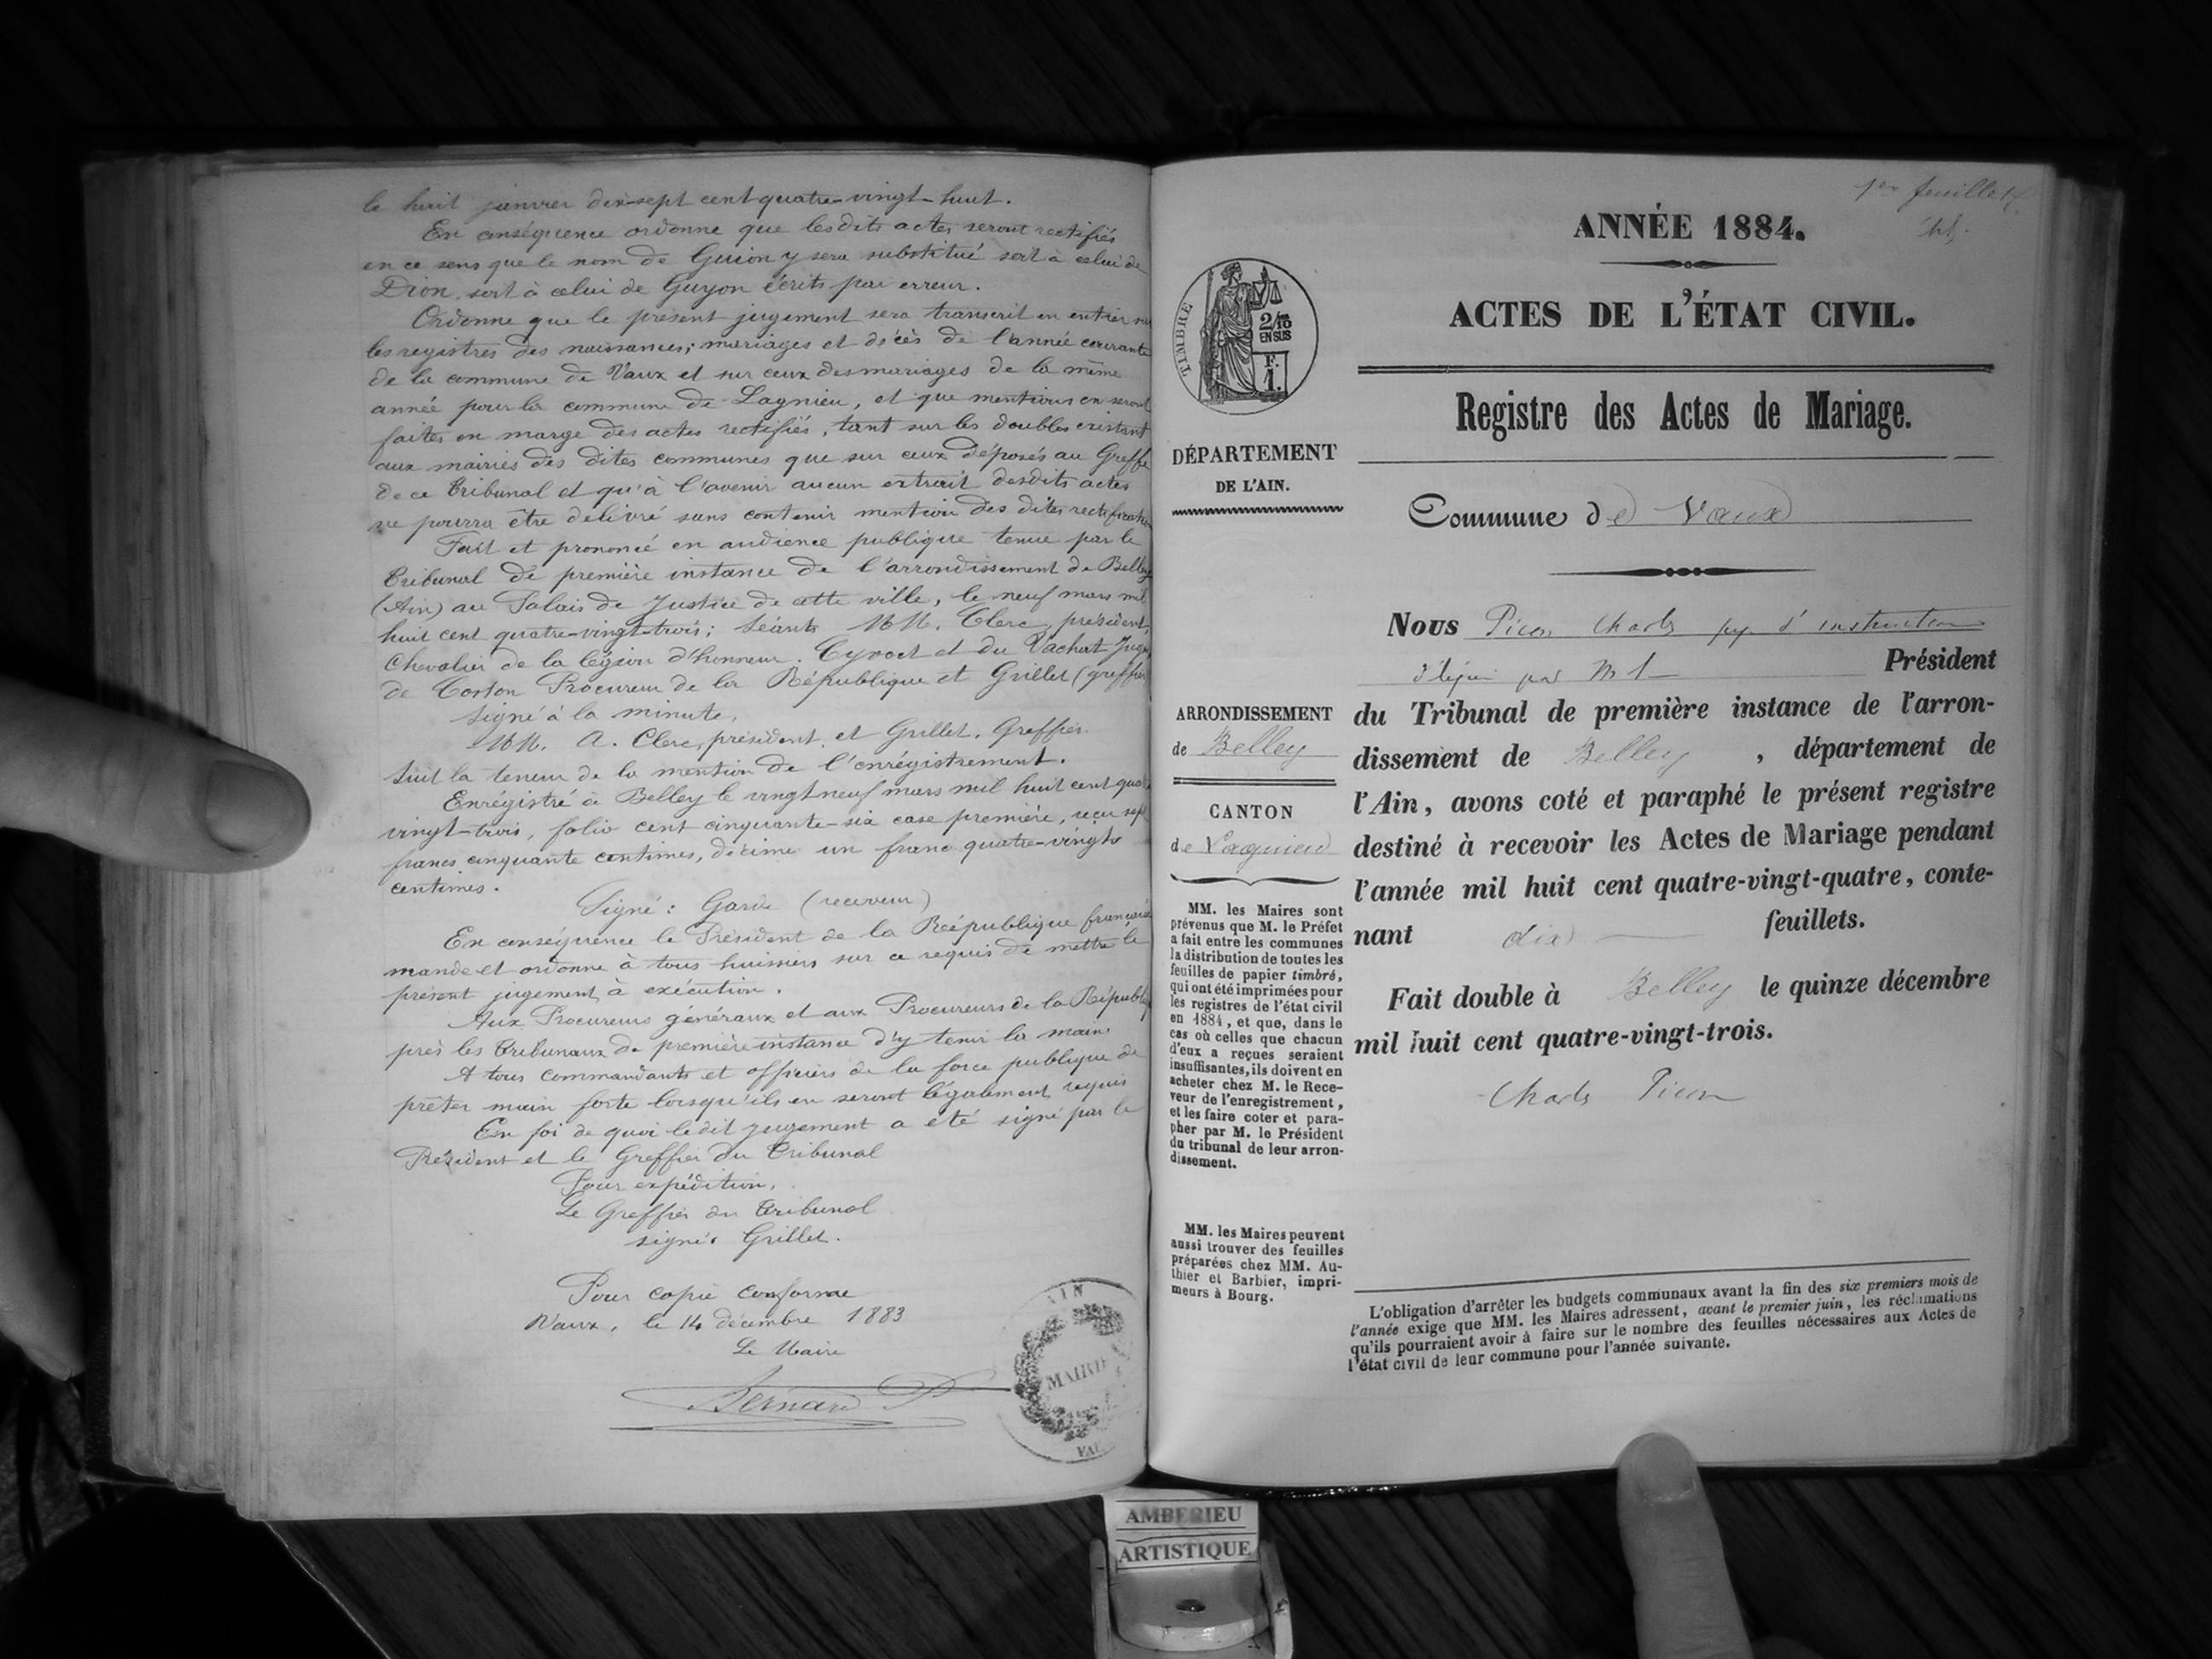 le huit janvier dix-sept cent quatre-vingt-huit.
En conséquence ordonne que lesdits actes seront rectifiés
en ce sens que le nom de Guion y sera substitué soit à celui de
Dion, soit à celui de Guyon écrits par erreur.
Ordonne que le présent jugement sera transcrit en entier sur
les registres des naissances, mariages et décès de l'année courante
de la commune de Vaux et sur ceux des mariages de la même
année pour la commune de Lagnieu, et que mentions en seront
faites en marge des actes rectifiés, tant sur les doubles existant
aux mairies des dites communes que sur ceux déposés au Greffe
de ce Tribunal et qu'à l'avenir aucun extrait desdits actes
ne pourra être délivré sans contenir mention des dites rectification
Fait et prononcé en audience publique tenue par le
Tribunal de première instance de l'arrondissement de Belley
(Ain) au Palais de Justice de cette ville, le neuf mars mil
huit cent quatre-vingt-trois; Séants MM. Clerc, président,
Chevalier de la légion d'honneur. Cyvoct et du Vachat Juges
de Coston Procureur de la République et Grillet (greffier
Signé à la minute,
MM. A. Clerc, président, et Grillet, Greffier.
Suit la teneur de la mention de l'enrégistrement.
Enrégistré à Belley le vingt neuf mars mil huit cent quatre
vingt-trois, folio cent cinquante-six case première, reçu sept
francs cinquante centimes, décime un franc quatre-vingts
centimes.
Signé: Garde (receveur)
En conséquence le Président de la République française
mande et ordonne à tous huissiers sur ce requis de mettre le
présent jugement à exécution.
Aux Procureurs généraux et aux Procureurs de la République
près les Tribunaux de première instance d'y tenir la main
A tous commandants et officiers de la force publique de
prêter main forte lorsqu'ils en seront légalement requis
En foi de quoi ledit jugement a été signé par le
Président et le Greffier du Tribunal
Pour expédition,
Le Greffier du Tribunal
signé: Grillet.
Pour copie conforme
Vaux, le 14 décembre 1883
Le Maire
Bernard
AIN
MAIRIE
VAU
1er feuillet
ANNÉE 1884.
ACTES DE L'ÉTAT CIVIL.
Registre des Actes de Mariage.
TIMBRE
2/10
EN SUS
F.
1.
DÉPARTEMENT
DE L'AIN.
Commune de Vaux
Nous Picon Charles juge d'instruction
délégué par M le Président
du Tribunal de première instance de l'arron-
dissement de Belley, département de
l'Ain, avons coté et paraphé le présent registre
destiné à recevoir les Actes de Mariage pendant
l'année mil huit cent quatre-vingt-quatre, conte-
nant dix feuillets.
Fait double à Belley le quinze décembre
mil huit cent quatre-vingt-trois.
Charles Picon
ARRONDISSEMENT
de Belley
CANTON
de Lagnieu
MM. les Maires sont
prévenus que M. le Préfet
a fait entre les communes
la distribution de toutes les
feuilles de papier timbré,
qui ont été imprimées pour
les registres de l'état civil
en 1884, et que, dans le
cas où celles que chacun
d'eux a reçues seraient
insuffisantes, ils doivent en
acheter chez M. le Rece-
veur de l'enregistrement,
et les faire coter et para-
pher par M. le Président
du tribunal de leur arron-
dissement.
MM. les Maires peuvent
aussi trouver des feuilles
préparées chez MM. Au-
thier et Barbier, impri-
meurs à Bourg.
L'obligation d'arrêter les budgets communaux avant la fin des six premiers mois de
l'année exige que MM. les Maires adressent, avant le premier juin, les réclamations
qu'ils pourraient avoir à faire sur le nombre des feuilles nécessaires aux Actes de
l'état civil de leur commune pour l'année suivante.
AMBERIEU
ARTISTIQUE